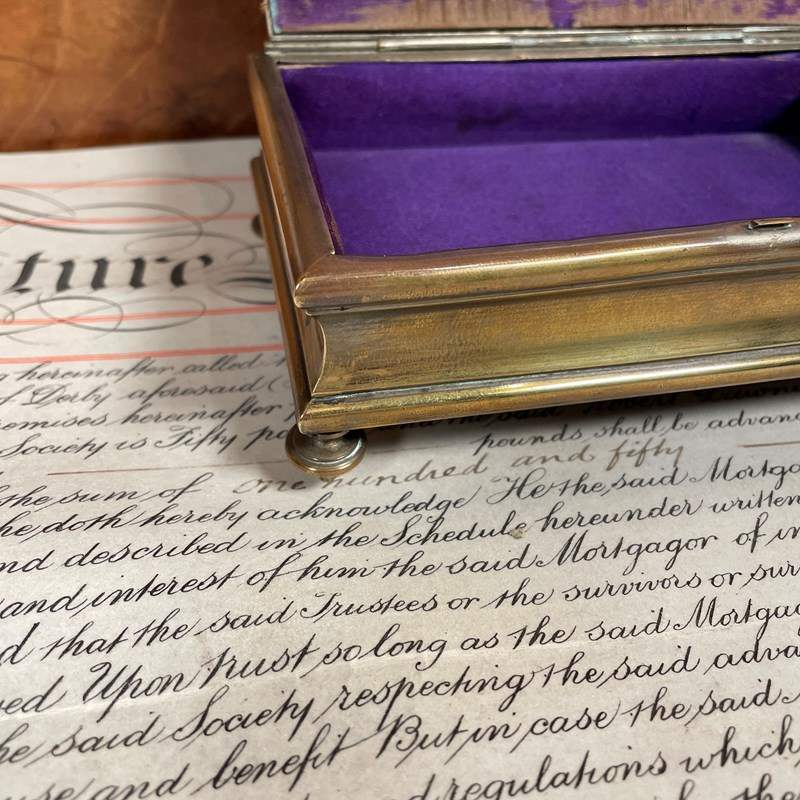 ture
hereinafter called
of Derby aforesaid
emises hereinafter
Society is Fifty
pounds, shall be advanc
the sum of one hundred and fifty
he doth hereby acknowledge He the said Mortga
nd described in the Schedule hereunder written
and interest of him the said Mortgagor of in
d that the said Trustees or the survivors or sur
ved Upon trust so long as the said Mortgag
he said Society respecting the said adva
use and benefit But in case the said
d regulations which
the